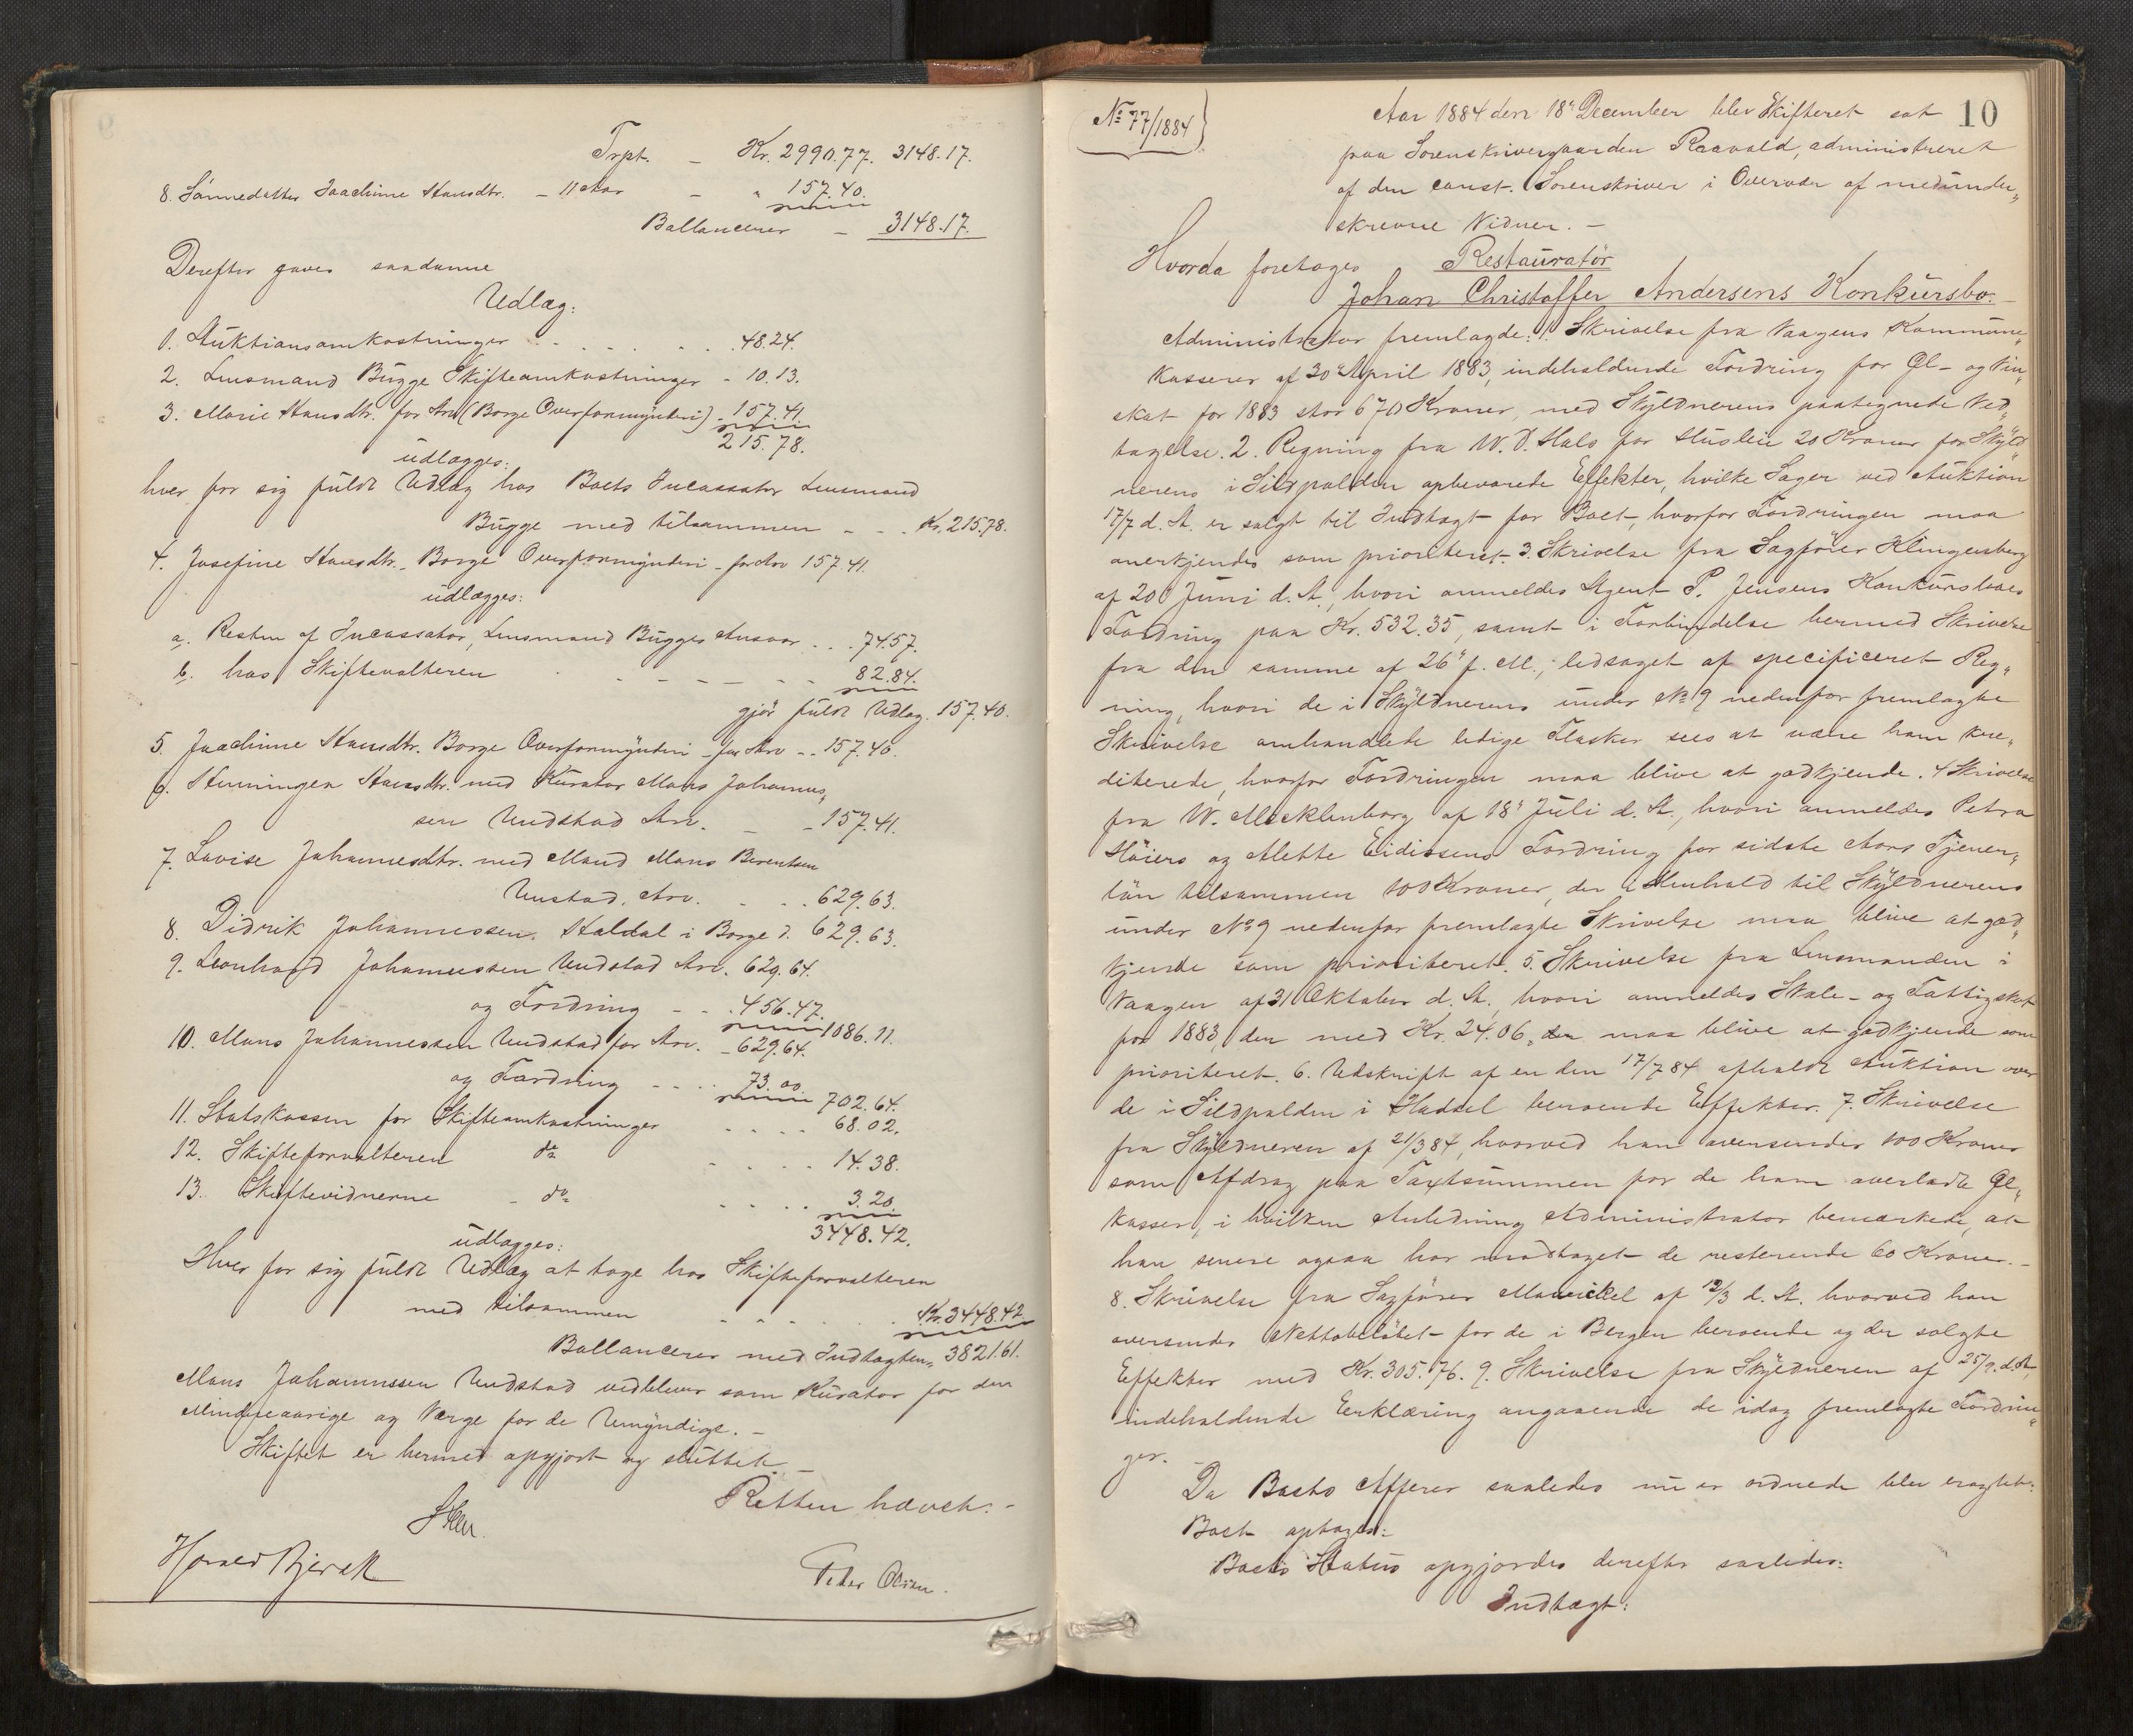 Trpt. – Kr. 2990.77. 3148.17.
8. Sønnedatter Joachime Hansdtr. – 11 Aar – " 157.40.
Ballancerer – 3148.17.
Derefter gaves saadanne
Udlæg:
1. Auktionsomkostninger . . . . . . 48.24.
2. Lensmand Bugge Skifteomkostninger - 10.13.
3. Marie Hansdtr. for Arv (Borge Overformynderi) - 157.41
215.78.
udlægges:
hver for sig fuldt Udlæg hos Boets Incassator Lensmand
Bugge med tilsammen - - . Kr. 215.78.
4. Josefine Hansdtr. Borge Overformynderi - for Arv 157.41.
udlægges:
a. Resten af Incassator, Lensmand Bugges Ansvar . . . 74.57.
b. hos Skifteforvalteren - - - - - 82.84.
gjør fuldt Udlæg. 157.40.
5. Joachime Hansdtr. Borge Overformynderi - for Arv - - 157.40.
6. Henningea Hansdtr. med Kurator Mons Johannes„
sen Undstad Arv. - - 157.41.
7. Lovise Johannesdtr. med Mand Mons Berentsen
Unstad, Arv. - . . 629.63.
8. Didrik Johannessen. Haldal i Borge d. 629.63.
9. Leonhard Johannessen Undstad Arv. 629.64.
og Fordring - - . 456.47.
1086.11.
10. Mons Johannessen Undstad for Arv. - 629.64.
og Fordring - - . . 73.00
702.64.
11. Statskassen for Skifteomkostninger . . . . 68.02.
12. Skifteforvalteren do . . . . 14.38.
13. Skiftevidnerne - do . . . . 3.20.
3448.42.
udlægges:
Hver for sig fuldt Udlæg at tage hos Skifteforvalteren
med tilsammen - - . . . Kr. 3448.42
Ballancerer med Indtægten, 3821.61.
Mons Johannessen Undstad vedbliver som Kurator for den
Mindreaarige og Værge for de Umyndige. –
Skiftet er hermed opgjort og sluttet. –
Retten hævet. –
Peder Olsen.
No 77/1884
10
Aar 1884 den 18de December blev Skifteret sat
paa Sorenskrivergaarden Raavold, administreret
af den const. Sorenskriver i Overvær af medunder„
skrevne Vidner. –
Hvorda foretoges Restauratør
Johan Christoffer Andersens Konkursbo. –
Administrator fremlagde: 1. Skrivelse fra Vaagens Kommune„
kasserer af 30 April 1883, indeholdende Fordring for Øl- og Vin„
skat for 1883 stor 670 Kroner, med Skyldnerens paategnede Ved„
tagelse. 2. Regning fra W. D. Hals for Husleie 20 Kroner for Skyld„
nerens i Sildpolden opbevarede Effekter, hvilke Sager ved Auktion
17/7 d. A. er solgt til Indtægt for Boet, hvorfor Fordringen maa
anerkjendes som prioriteret. 3. Skrivelse fra Sagfører Klingenberg
af 20 Juni d. A., hvori anmeldes Agent P. Jensens Konkursboes
Fordring paa Kr. 532.35, samt i Forbindelse hermed Skrivelse
fra den samme af 26' f. M., ledsaget af specificeret Reg„
ning, hvori de i Skyldnerens under No 9 nedenfor fremlagte
Skrivelse omhandlede ledige Flasker sees at være ham kre„
diterede, hvorfor Fordringen maa blive at godkjende. 4 Skrivelse
fra W. Mecklenborg af 18' Juli d. A., hvori anmeldes Petra
Høiers og Mette Eidissens Fordring for sidste Aars Tjener„
løn tilsammen 100 Kroner, der i Henhold til Skyldnerens
under No 9 nedenfor fremlagte Skrivelse maa blive at god„
kjende som prioriteret. 5. Skrivelse fra Lensmanden i
Vaagen af 31 Oktober d. A., hvori anmeldes Skole- og Fattigskat
for 1883, der med Kr. 24.06, maa blive at godkjende som
prioriteret. 6. Udskrift af en den 17/7 84 afholdt Auktion over
de i Sildpolden i Hadsel beroende Effekter. 7. Skrivelse
fra Skyldneren af 21/3 84, hvorved han oversender 100 Kroner
som Afdrag paa Taxtsummen for de ham overladte Øl„
kasser, i hvilken Anledning Administrator bemærkede, at
han senere ogsaa har modtaget de resterende 60 Kroner. –
8. Skrivelse fra Sagfører af 12/3 d. A. hvorved han
oversender Nettobeløbet for de i Bergen beroende og der solgte
Effekter med Kr. 305.76. 9. Skrivelse fra Skyldneren af 25/9. d. A.,
indeholdende Erklæring angaaende de idag fremlagte Fordrin„
ger. –
Da Boets Affærer saaledes nu er ordnede blev eragtet:
Boet optages:
Boets Status opgjordes derefter saaledes:
Indtægt: